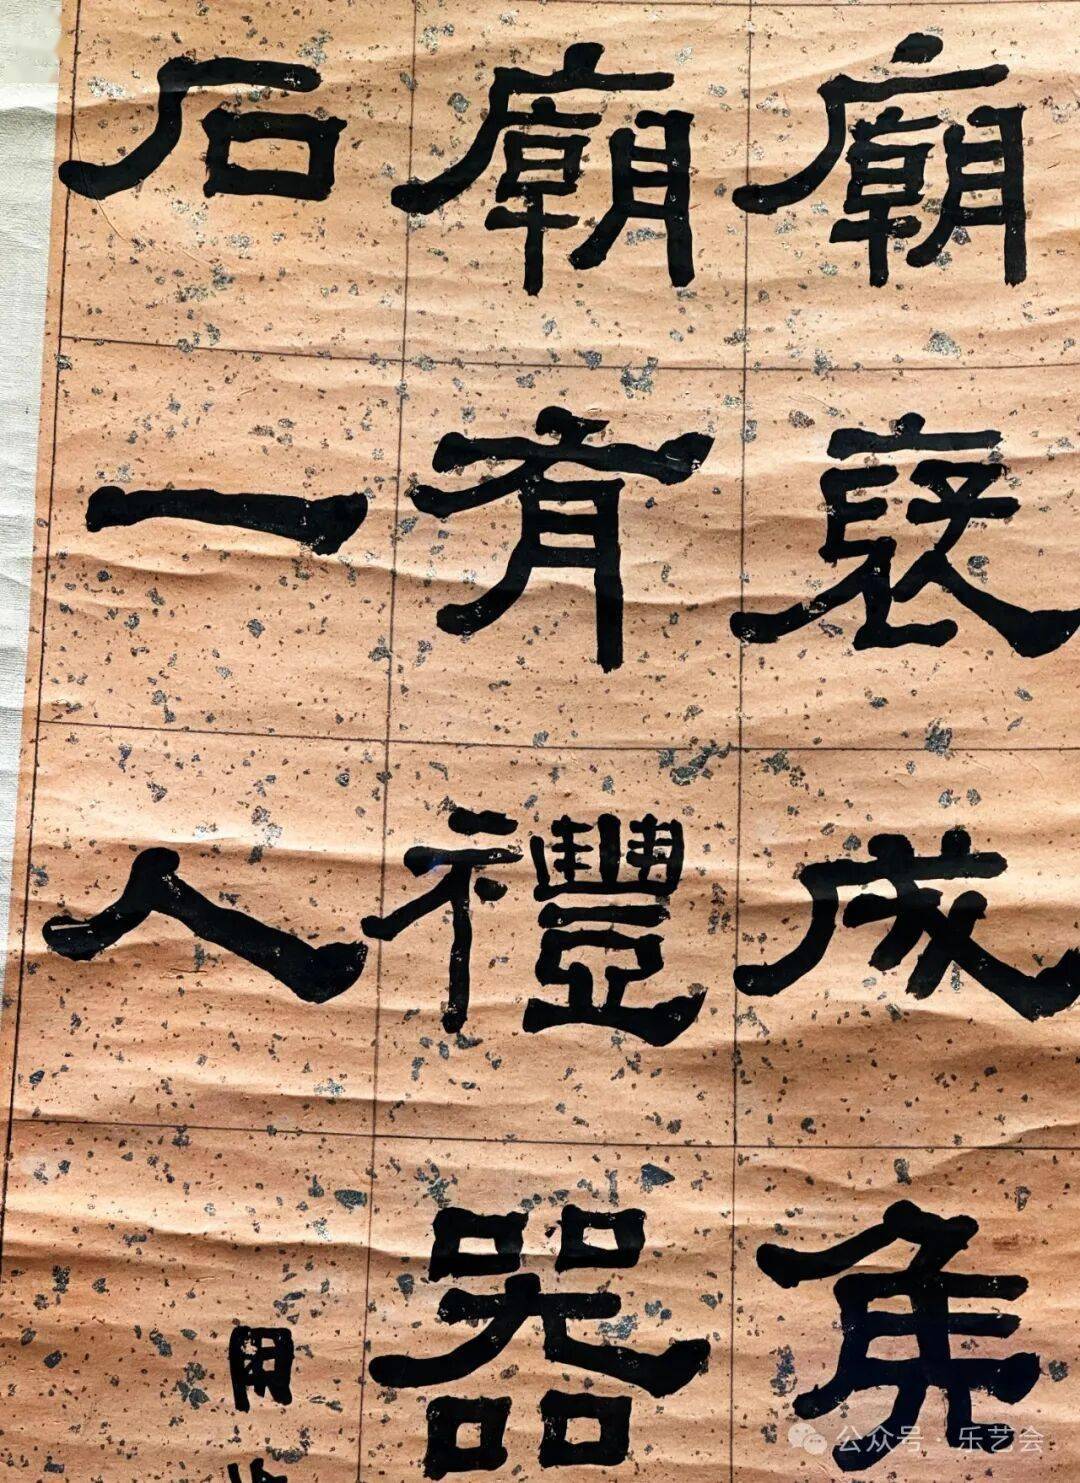 廟褒成侯
廟有禮器
石一人
公众号·乐艺会